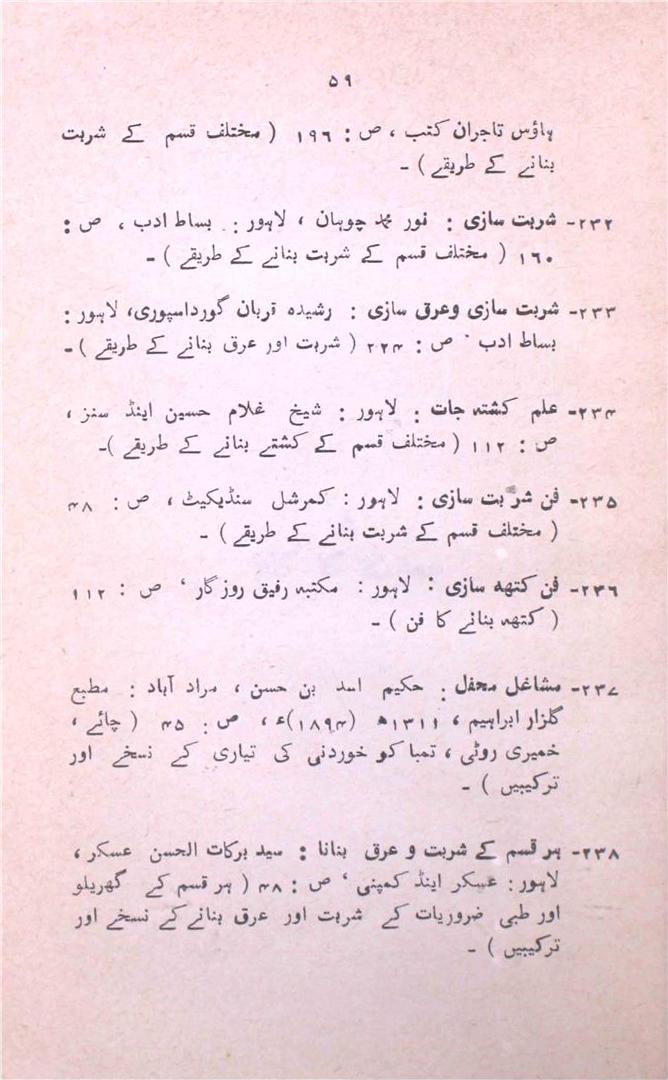 ۵۹
ہاؤس تاجران کتب ، ص : ۱۹۶ ( مختلف قسم کے شربت
بنانے کے طریقے ) ۔
۲۳۲۔ شربت سازی : نور محمد چوہان ، لاہور : بساط ادب ، ص :
۱۶۰ ( مختلف قسم کے شربت بنانے کے طریقے ) ۔
۲۳۳۔ شربت سازی وعرق سازی : رشیدہ قربان گورداسپوری، لاہور :
بساط ادب ، ص : ۲۲۴ ( شربت اور عرق بنانے کے طریقے ) ۔
۲۳۴۔ علم کشتہ جات : لاہور : شیخ غلام حسین اینڈ سنز ،
ص : ۱۱۲ ( مختلف قسم کے کشتے بنانے کے طریقے )۔
۲۳۵۔ فن شربت سازی : لاہور : کمرشل سنڈیکیٹ ، ص : ۴۸
( مختلف قسم کے شربت بنانے کے طریقے ) ۔
۲۳۶۔ فن کتھہ سازی : لاہور : مکتبہ رفیق روزگار ، ص : ۱۱۲
( کتھہ بنانے کا فن ) ۔
۲۳۷۔ مشاغل محفل : حکیم اسد بن حسن ، مراد آباد : مطبع
گلزار ابراہیم ، ۱۳۱۱ھ (۱۸۹۴)ء ، ص : ۴۵ ( چائے ،
خمیری روٹی ، تمباکو خوردنی کی تیاری کے نسخے اور
ترکیبیں ) ۔
۲۳۸۔ ہر قسم کے شربت و عرق بنانا : سید برکات الحسن عسکر ،
لاہور : عسکر اینڈ کمپنی ، ص : ۴۸ ( ہر قسم کے گھریلو
اور طبی ضروریات کے شربت اور عرق بنانے کے نسخے اور
ترکیبیں ) ۔